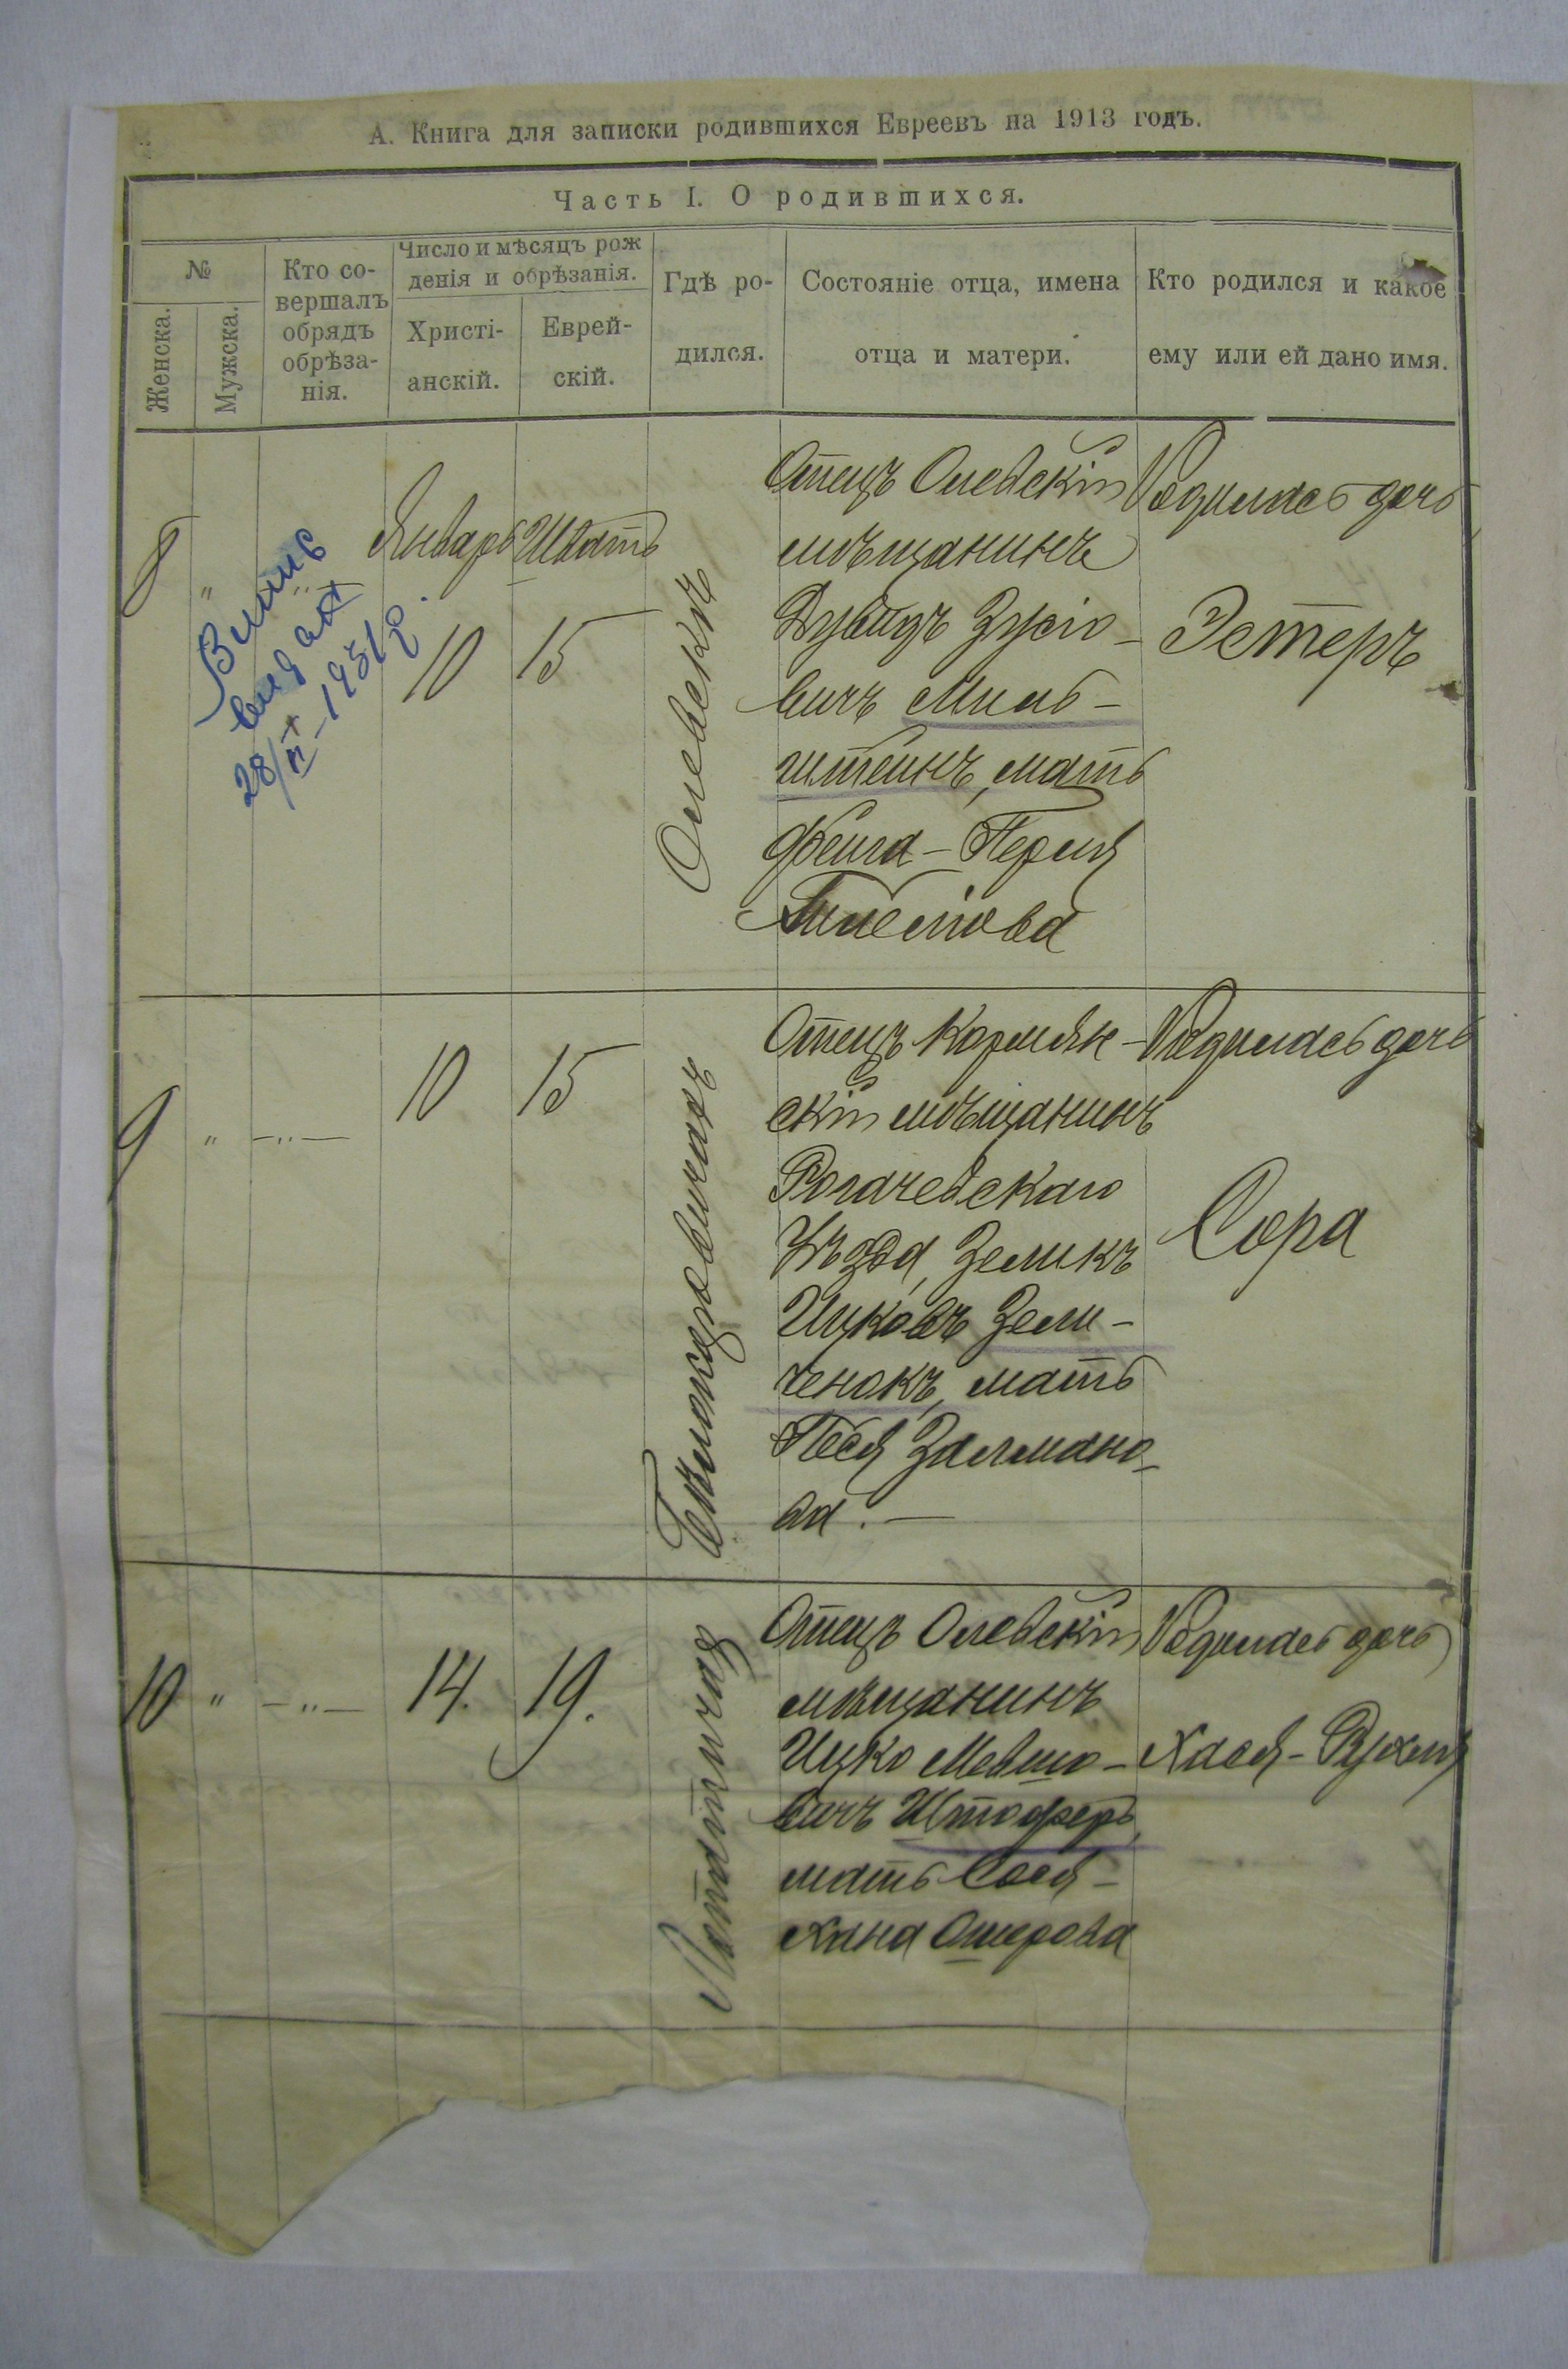 А. Книга для записки родившихся Евреевъ на 1913 годъ.
Часть I. О родившихся.
№
Женска.
Мужска.
Кто со-
вершалъ
обрядъ
обрѣза-
нія.
Число и мѣсяцъ рож
денія и обрѣзанія.
Христі-
анскій.
Еврей-
скій.
Гдѣ ро-
дился.
Состояніе отца, имена
отца и матери.
Кто родился и какое
ему или ей дано имя.
8
"
Январь
10
Шватъ
15
Олевскъ
Отецъ Олевскій
мѣщанинъ
Дувидъ Зусіо-
вичъ Миль-
штейнъ, мать
Фейга-Перля
Родилась дочь
Эстеръ
выдан
28/XI-1951 г.
9
" -"-
10
15
Бѣлокоровичахъ
Отецъ Кормян-
скій мѣщанинъ
Рогачевскаго
Уѣзда, Зеликъ
Ицковъ Зели-
ченокъ, мать
Песя Залмано-
ва.-
Родилась дочь
Сора
10
" -"-
14.
19.
Лопатичах
Отецъ Олевскій
мѣщанинъ
Ицко Мевшо-
вичъ Штофер,
мать Сося-
Хана Ошерова
Родилась дочь
Хася-Рухля